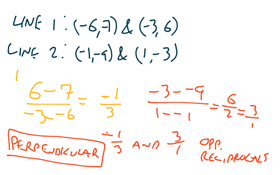 LINE 1: (-6,7) & (-3,6)
LINE 2: (-1,-9) & (1,-3)
6-7 / -3--6 = -1/3
-3--9 / 1--1 = 6/2 = 3/1
PERPENDICULAR -1/3 AND 3/1 OPP. RECIPROCALS